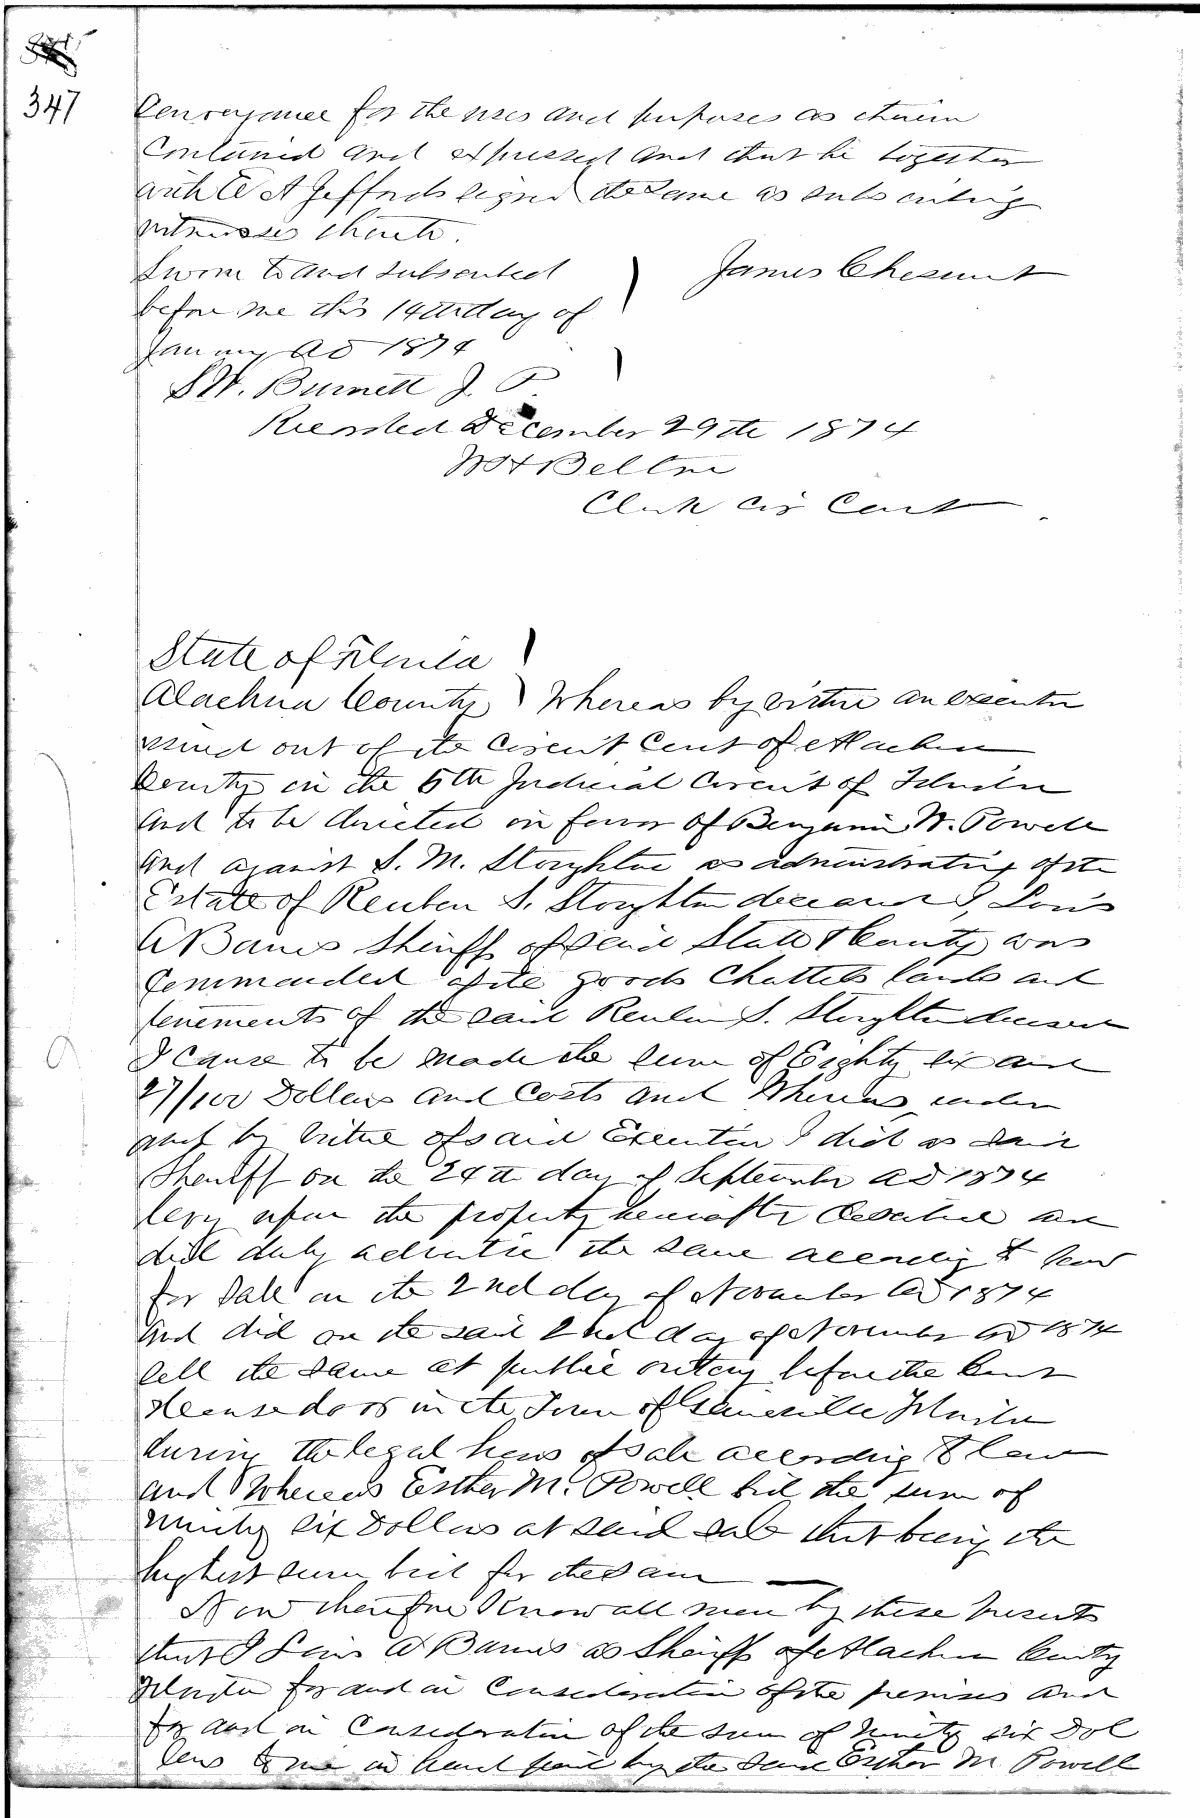 347
Conveyance for the uses and purposes as therein
contained and expressed and that he together
with E A Jeffords signed the same as subscribing
witnesses thereto.
Sworn to and subscribed
before me this 14th day of
January AD 1874
James Chesnut
S W. Burnett J. P.
Recorded December 29th 1874
W H Belton
Clerk Cir Court
State of Florida
Alachua County Whereas by virtue an execution
issued out of the Circuit Court of Alachua
County in the 5th Judicial Circuit of Florida
and to be directed in favor of Benjamin W. Powell
and against S. M. Stoughton as administrating of the
Estate of Reuben S. Stoughton deceased I, Louis
A Barnes Sheriff of said State & County was
Commanded of the goods Chattels lands and
tenements of the said Reuben S. Stoughton deceased
I cause to be made the sum of Eighty six and
27/100 Dollars and Costs and Whereas under
and by virtue of said Execution I did as said
Sheriff on the 24th day of September AD 1874
levy upon the property hereinafter described and
did duly advertise the same according to law
for Sale on the 2nd day of November AD 1874
and did on the said 2nd day of November AD 1874
sell the same at public outcry before the Court
House door in the Town of Gainesville Florida
during the legal hours of sale according to law
and Whereas Esther M. Powell bid the sum of
ninety six Dollars at said sale that being the
highest sum bid for the same
Now therefore Know all men by these presents
that I Louis A Barnes as Sheriff of Alachua County
Florida for and in Consideration of the premises and
for and in Consideration of the sum of Ninety six Dol
lars to me in hand paid by the said Esther M Powell